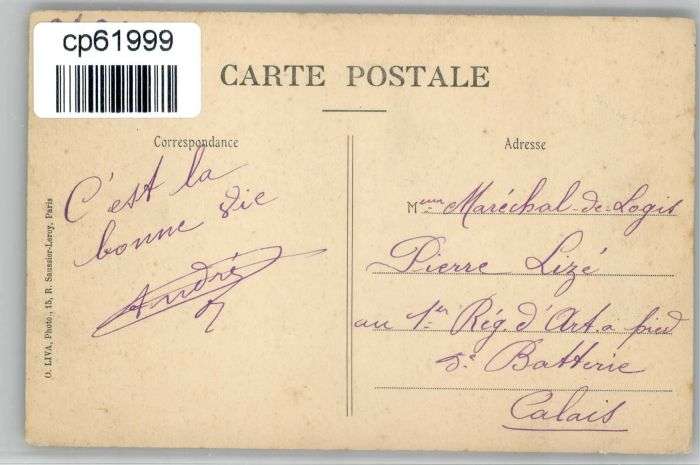 cp61999
CARTE POSTALE
Correspondance
Adresse
C'est la
bonne vie
André
Meur Maréchal-de-Logis
Pierre Lizé
au 1er Rég. d'Art. à pied
8e Batterie
Calais
O. LIVA, Photo., 15, R. Saussier-Leroy, Paris